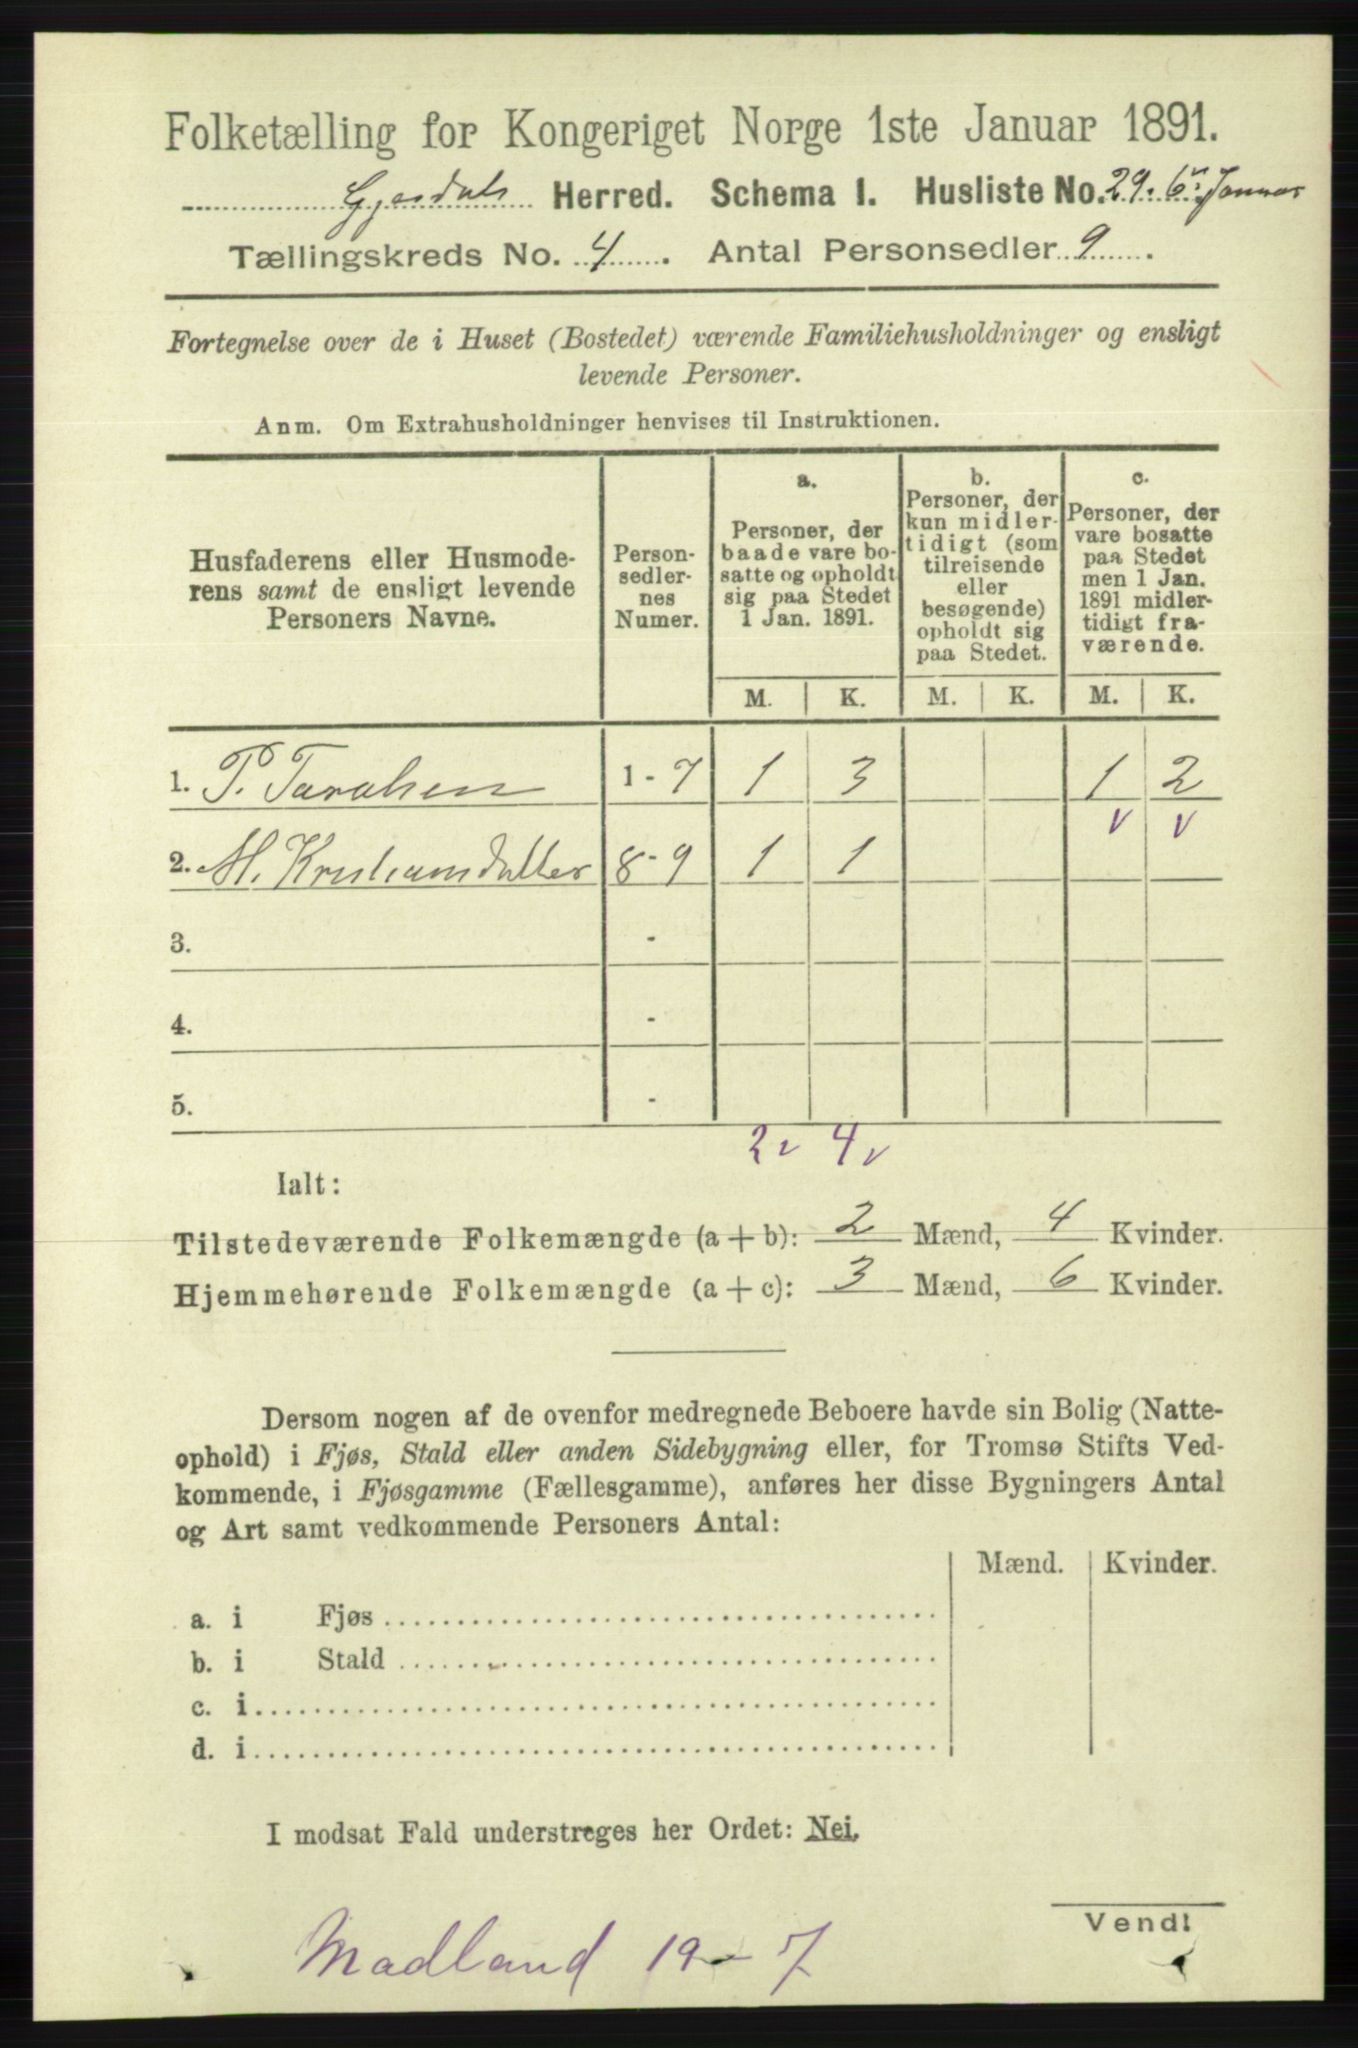 Folketælling for Kongeriget Norge 1ste Januar 1891.
Gjesdals Herred. Schema I. Husliste No. 29. 6te Januar
Tællingskreds No. 4. Antal Personsedler 9.
Fortegnelse over de i Huset (Bostedet) værende Familiehusholdninger og ensligt
levende Personer.
Anm. Om Extrahusholdninger henvises til Instruktionen.
Husfaderens eller Husmode-
rens samt de ensligt levende
Personers Navne.
Person-
sedler-
nes
Numer.
a.
Personer, der
baade vare bo-
satte og opholdt
sig paa Stedet
1 Jan. 1891.
b.
Personer, der
kun midler-
tidigt (som
tilreisende
eller
besøgende)
opholdt sig
paa Stedet.
c.
Personer, der
vare bosatte
paa Stedet
men 1 Jan.
1891 midler-
tidigt fra-
værende.
M. K. M. K. M. K.
1. P. 1 - 7 1 3 1 2
2. M. 8 - 9 1 1
3. -
4. -
5. -
2 v 4 v
Ialt:
Tilstedeværende Folkemængde (a + b): 2 Mænd, 4 Kvinder.
Hjemmehørende Folkemængde (a + c): 3 Mænd, 6 Kvinder.
Dersom nogen af de ovenfor medregnede Beboere havde sin Bolig (Natte-
ophold) i Fjøs, Stald eller anden Sidebygning eller, for Tromsø Stifts Ved-
kommende, i Fjøsgamme (Fællesgamme), anføres her disse Bygningers Antal
og Art samt vedkommende Personers Antal:
Mænd. Kvinder.
a. i Fjøs
b. i Stald
c. i
d. i
I modsat Fald understreges her Ordet: Nei.
Vend!
Madland 19 - 7